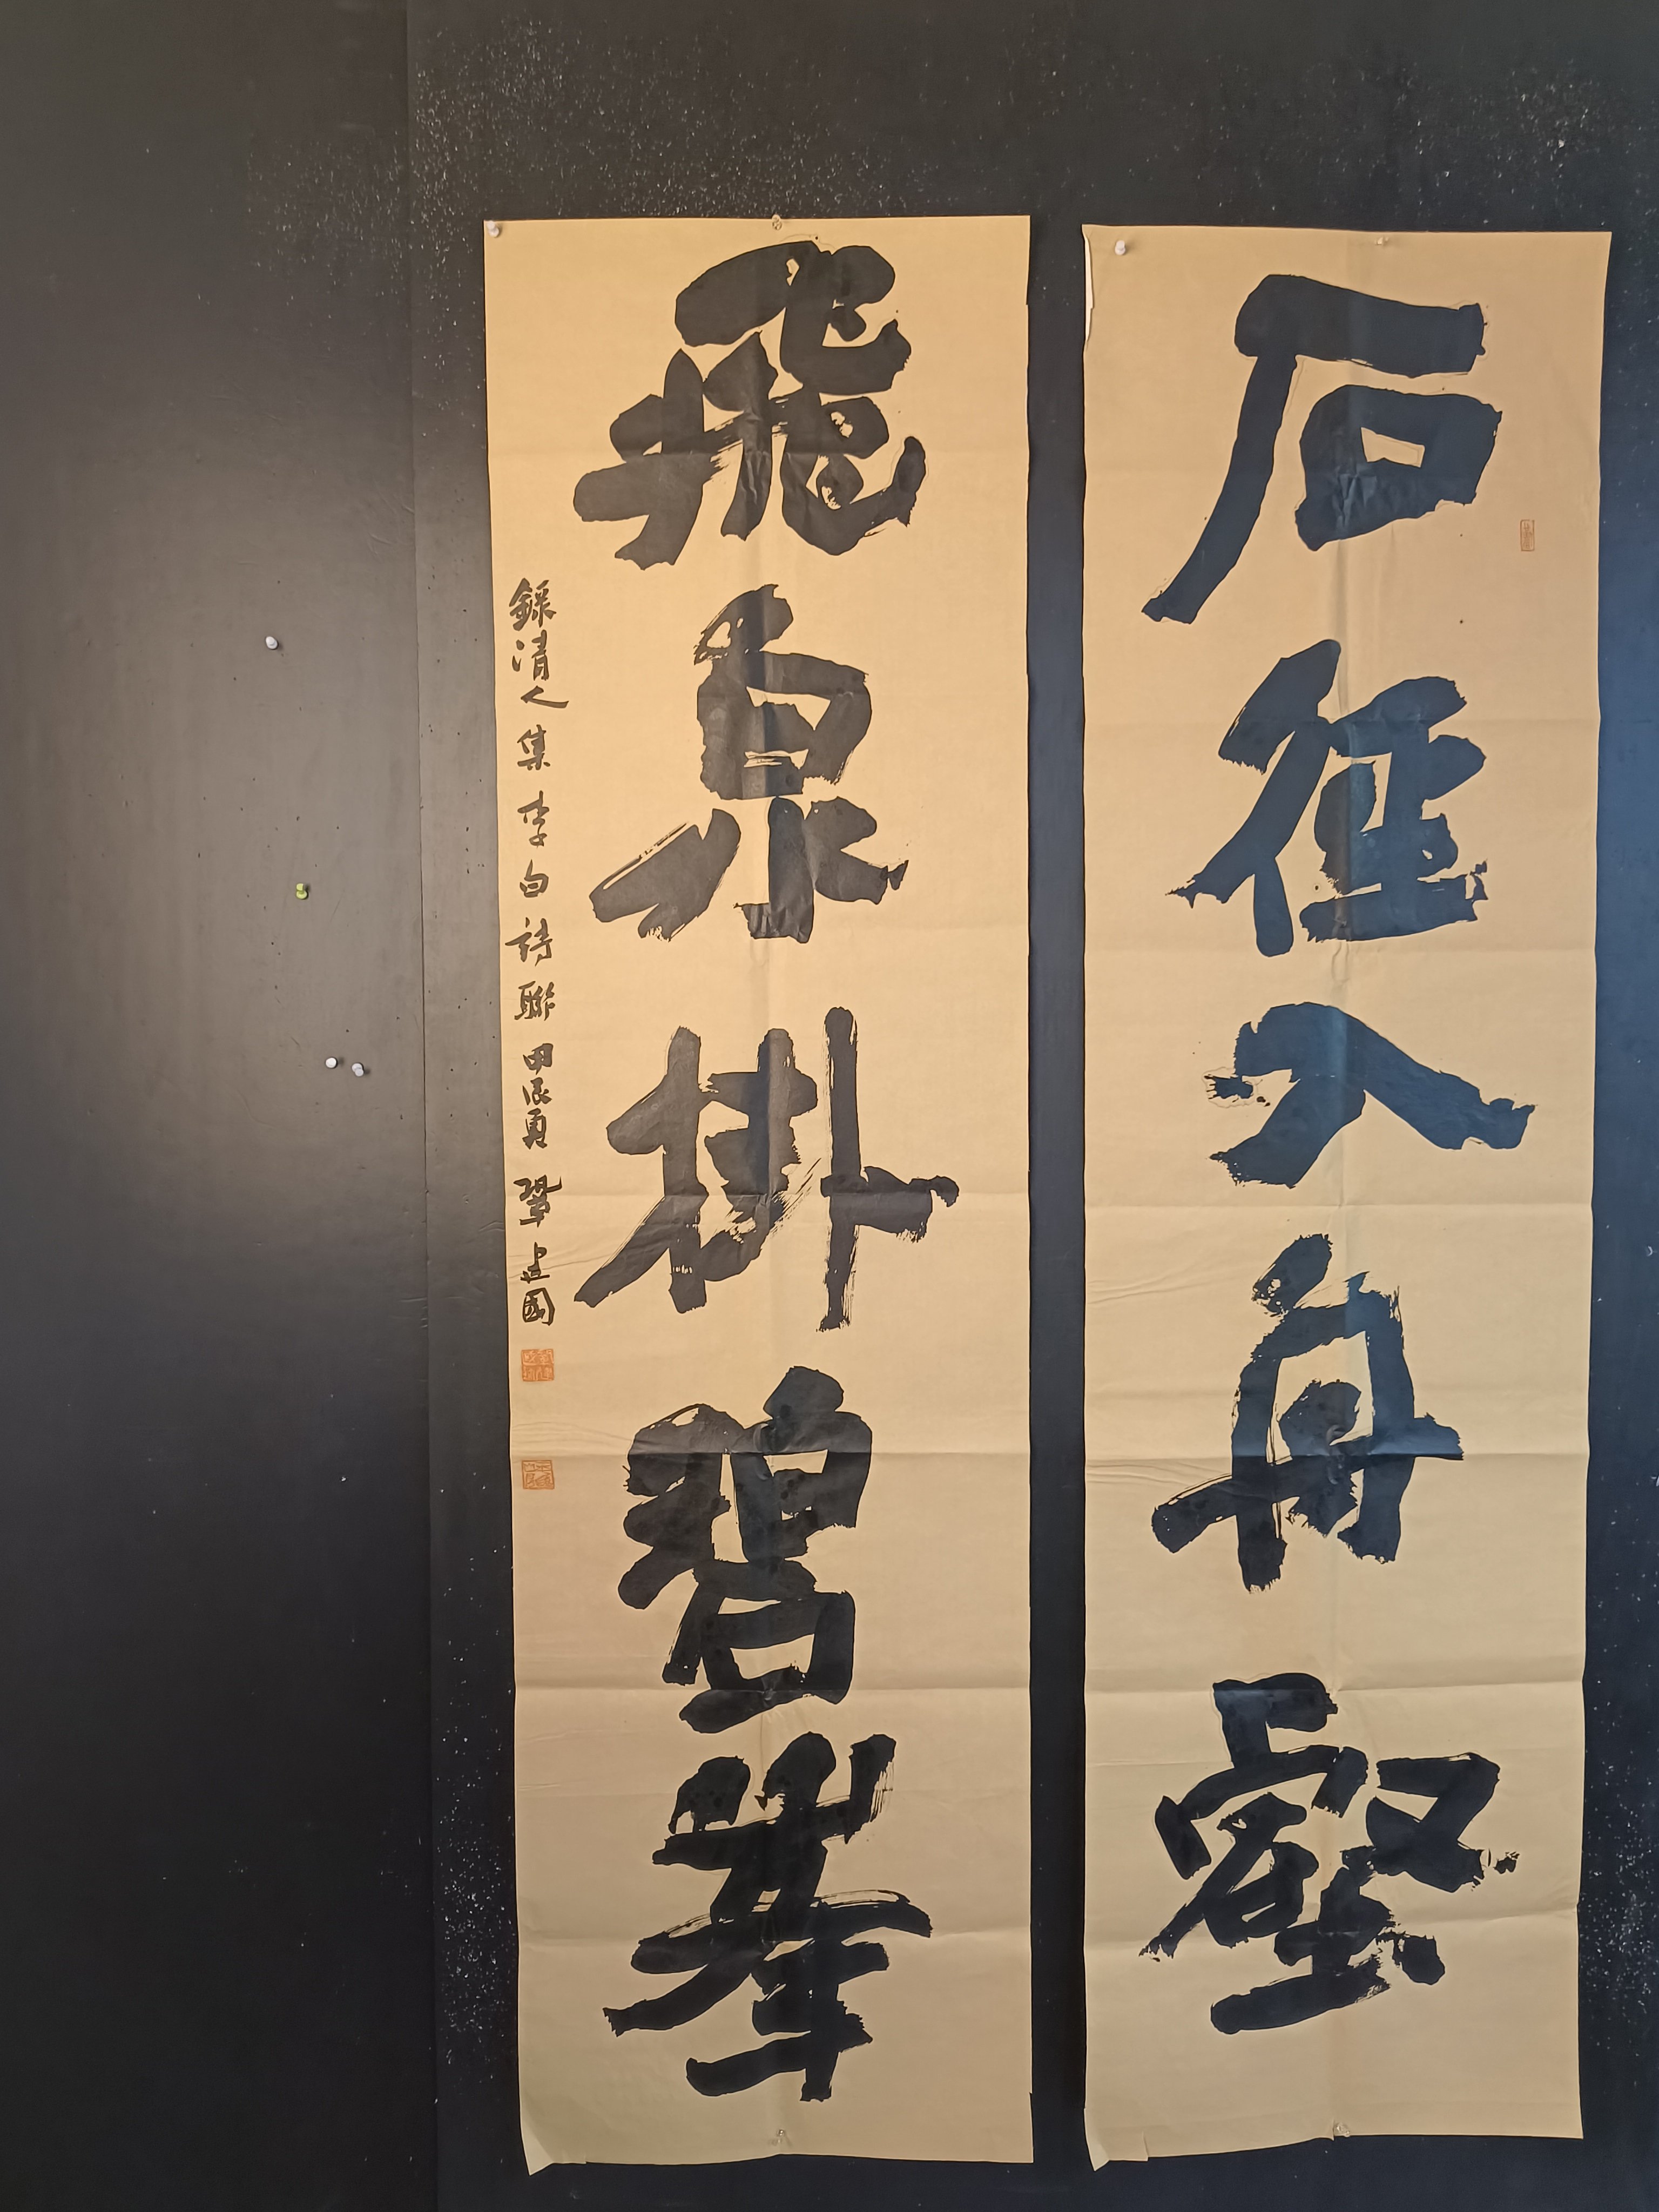 石徑入丹壑
飛泉掛碧峯
錄清人集李白詩聯甲辰夏鞏建國